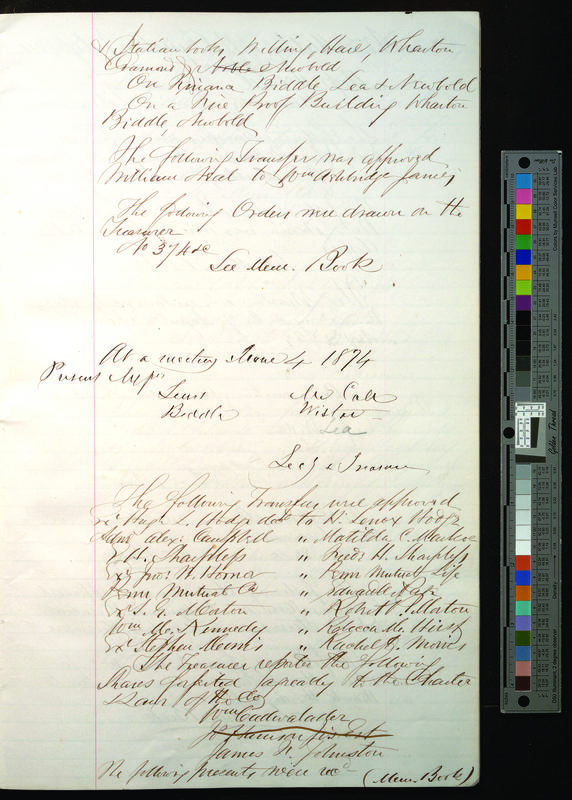 & Station books, Willing, Hare, Wharton
On Kiniana Biddle, Lea & Newbold
On a Fire Proof Building Wharton
Biddle, Newbold
The following Transfer was approved
William Neal to Wm Ashbridge James
The following Orders were drawn on the
Treasurer
No 374 &c
See Mem. Book
At a meeting June 4 1874
Present
Lewis Mc Call
Biddle Wister
Lea
Secy & Treasurer
The following Transfers were approved
Hugh L. Hodge decd to H. Lenox Hodge
Alex. Campbell " Matilda C.
H. Sharpless " H. Sharpless
Horner " Penn Mutual Life
Penn Mutual Co "
Morton " Robert Morton
Wm Mc. Kennedy " Rebecca M.
Exr Stephen Morris " Rachel Morris
The Treasurer reported the following
Shares forfeited agreeably to the Charter
& Laws of the Co
Wm Cadwalader
James Johnston
The following presents were recd (Mem. Book)